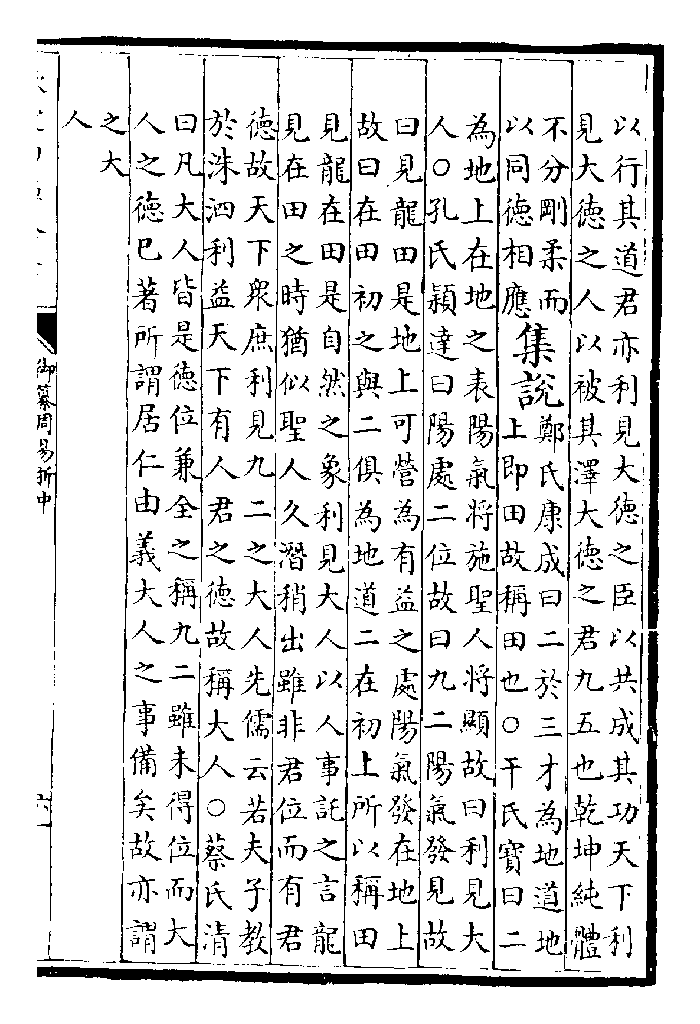 以行其道君亦利見大德之臣以共成其功天下利
見大德之人以被其澤大德之君九五也乾坤純體
不分剛柔而
以同德相應
集說
鄭氏康成曰二於三才為地道地
上即田故稱田也○干氏寶曰二
為地上在地之表陽氣將施聖人將顯故曰利見大
人○孔氏穎達曰陽處二位故曰九二陽氣發見故
曰見龍田是地上可營為有益之處陽氣發在地上
故曰在田初之與二俱為地道二在初上所以稱田
見龍在田是自然之象利見大人以人事託之言龍
見在田之時猶似聖人久潛稍出雖非君位而有君
德故天下衆庶利見九二之大人先儒云若夫子教
於洙泗利益天下有人君之德故稱大人○蔡氏清
曰凡大人皆是德位兼全之稱九二雖未得位而大
人之德已著所謂居仁由義大人之事備矣故亦謂
之大
人
御纂周易折中
六